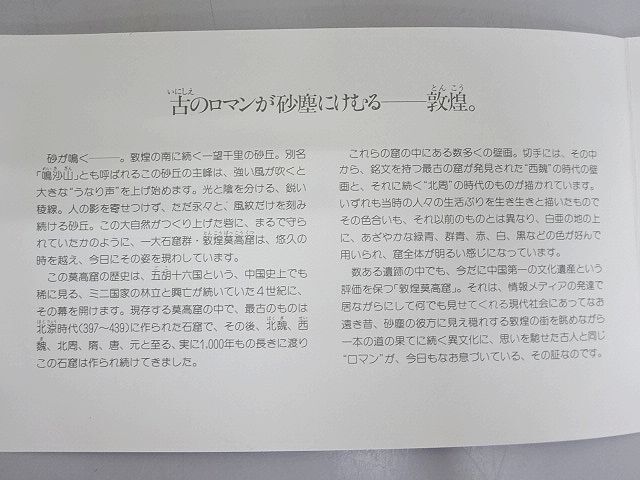 古のロマンが砂塵にけむる――敦煌。
砂が鳴く――。敦煌の南に続く一望千里の砂丘。別名
「鳴沙山」とも呼ばれるこの砂丘の主峰は、強い風が吹くと
大きな“うなり声”を上げ始めます。光と陰を分ける、鋭い
稜線。人の影を寄せつけず、ただ永々と、風紋だけを刻み
続ける砂丘。この大自然がつくり上げた砦に、まるで守ら
れていたかのように、一大石窟群・敦煌莫高窟は、悠久の
時を越え、今日にその姿を現わしています。
この莫高窟の歴史は、五胡十六国という、中国史上でも
稀に見る、ミニ国家の林立と興亡が続いていた4世紀に、
その幕を開けます。現存する莫高窟の中で、最古のものは
北涼時代(397〜439)に作られた石窟で、その後、北魏、西
魏、北周、隋、唐、元と至る、実に1,000年もの長きに渡り
この石窟は作られ続けてきました。
これらの窟の中にある数多くの壁画。切手には、その中
から、銘文を持つ最古の窟が発見された“西魏”の時代の壁
画と、それに続く“北周”の時代のものが描かれています。
いずれも当時の人々の生活ぶりを生き生きと描いたもので
その色合いも、それ以前のものとは異なり、白亜の地の上
に、あざやかな緑青、群青、赤、白、黒などの色が好んで
用いられ、窟全体が明るい感じになっています。
数ある遺跡の中でも、今だに中国第一の文化遺産という
評価を保つ「敦煌莫高窟」。それは、情報メディアの発達で
居ながらにして何でも見せてくれる現代社会にあってなお
遠き昔、砂塵の彼方に見え隠れする敦煌の街を眺めながら
一本の道の果てに続く異文化に、思いを馳せた古人と同じ
“ロマン”が、今日もなお息づいている、その証なのです。